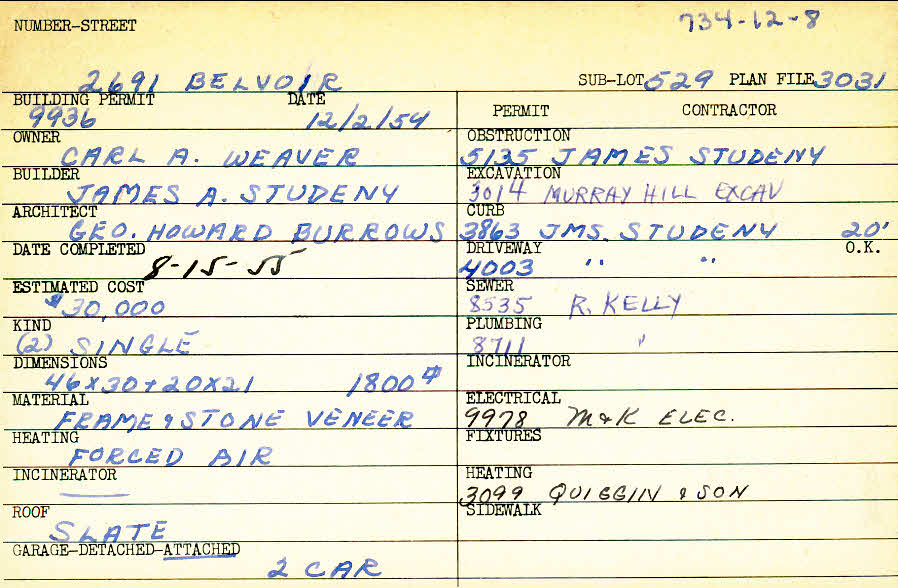 NUMBER-STREET 734-12-8
2691 BELVOIR SUB-LOT 529 PLAN FILE 3031
BUILDING PERMIT DATE PERMIT CONTRACTOR
9936 12/2/54
OWNER OBSTRUCTION
CARL A. WEAVER 5135 JAMES STUDENY
BUILDER EXCAVATION
JAMES A. STUDENY 3014 MURRAY HILL EXCAV
ARCHITECT CURB
GEO. HOWARD BURROWS 3863 JMS. STUDENY 20'
DATE COMPLETED DRIVEWAY O.K.
8-15-55 4003 " "
ESTIMATED COST SEWER
$30,000 8535 R. KELLY
KIND PLUMBING
(2) SINGLE 8711 "
DIMENSIONS INCINERATOR
46x30+20x21 1800#
MATERIAL ELECTRICAL
FRAME & STONE VENEER 9978 M&K ELEC.
HEATING FIXTURES
FORCED AIR
INCINERATOR HEATING
3099 QUIGGIN & SON
ROOF SIDEWALK
SLATE
GARAGE-DETACHED-ATTACHED
2 CAR